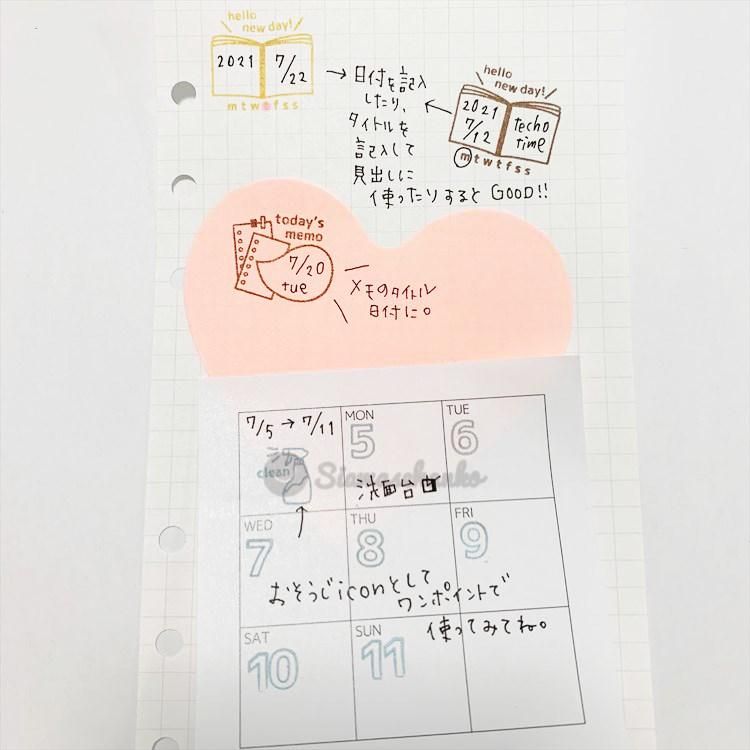 hello
new day!
2021 7/22
mtwtfss
→日付を記入
したり、
タイトルを
記入して
見出しに
使ったりするとGOOD!!
hello
new day!
2021 techo
7/12 time
mtwtfss
today's
memo
7/20
tue
メモのタイトル
日付に。
7/5→7/11
clean
Siamesehanko
MON
5
洗面台
TUE
6
WED
7
THU
8
FRI
9
おそうじiconとして
ワンポイントで
使ってみてね。
SAT
10
SUN
11